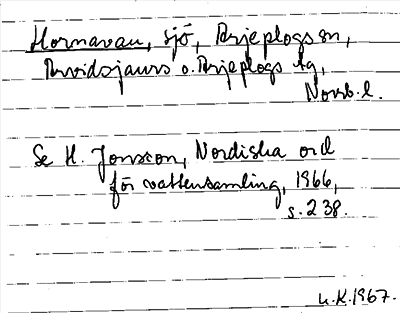 Hornavan, sjö, Arjeplogs sn,
Arvidsjaurs o. Arjeplogs tg,
Norrb. l.
Se H. Jonsson, Nordiska ord
för vattensamling, 1966,
s. 238.
L.K. 1967.